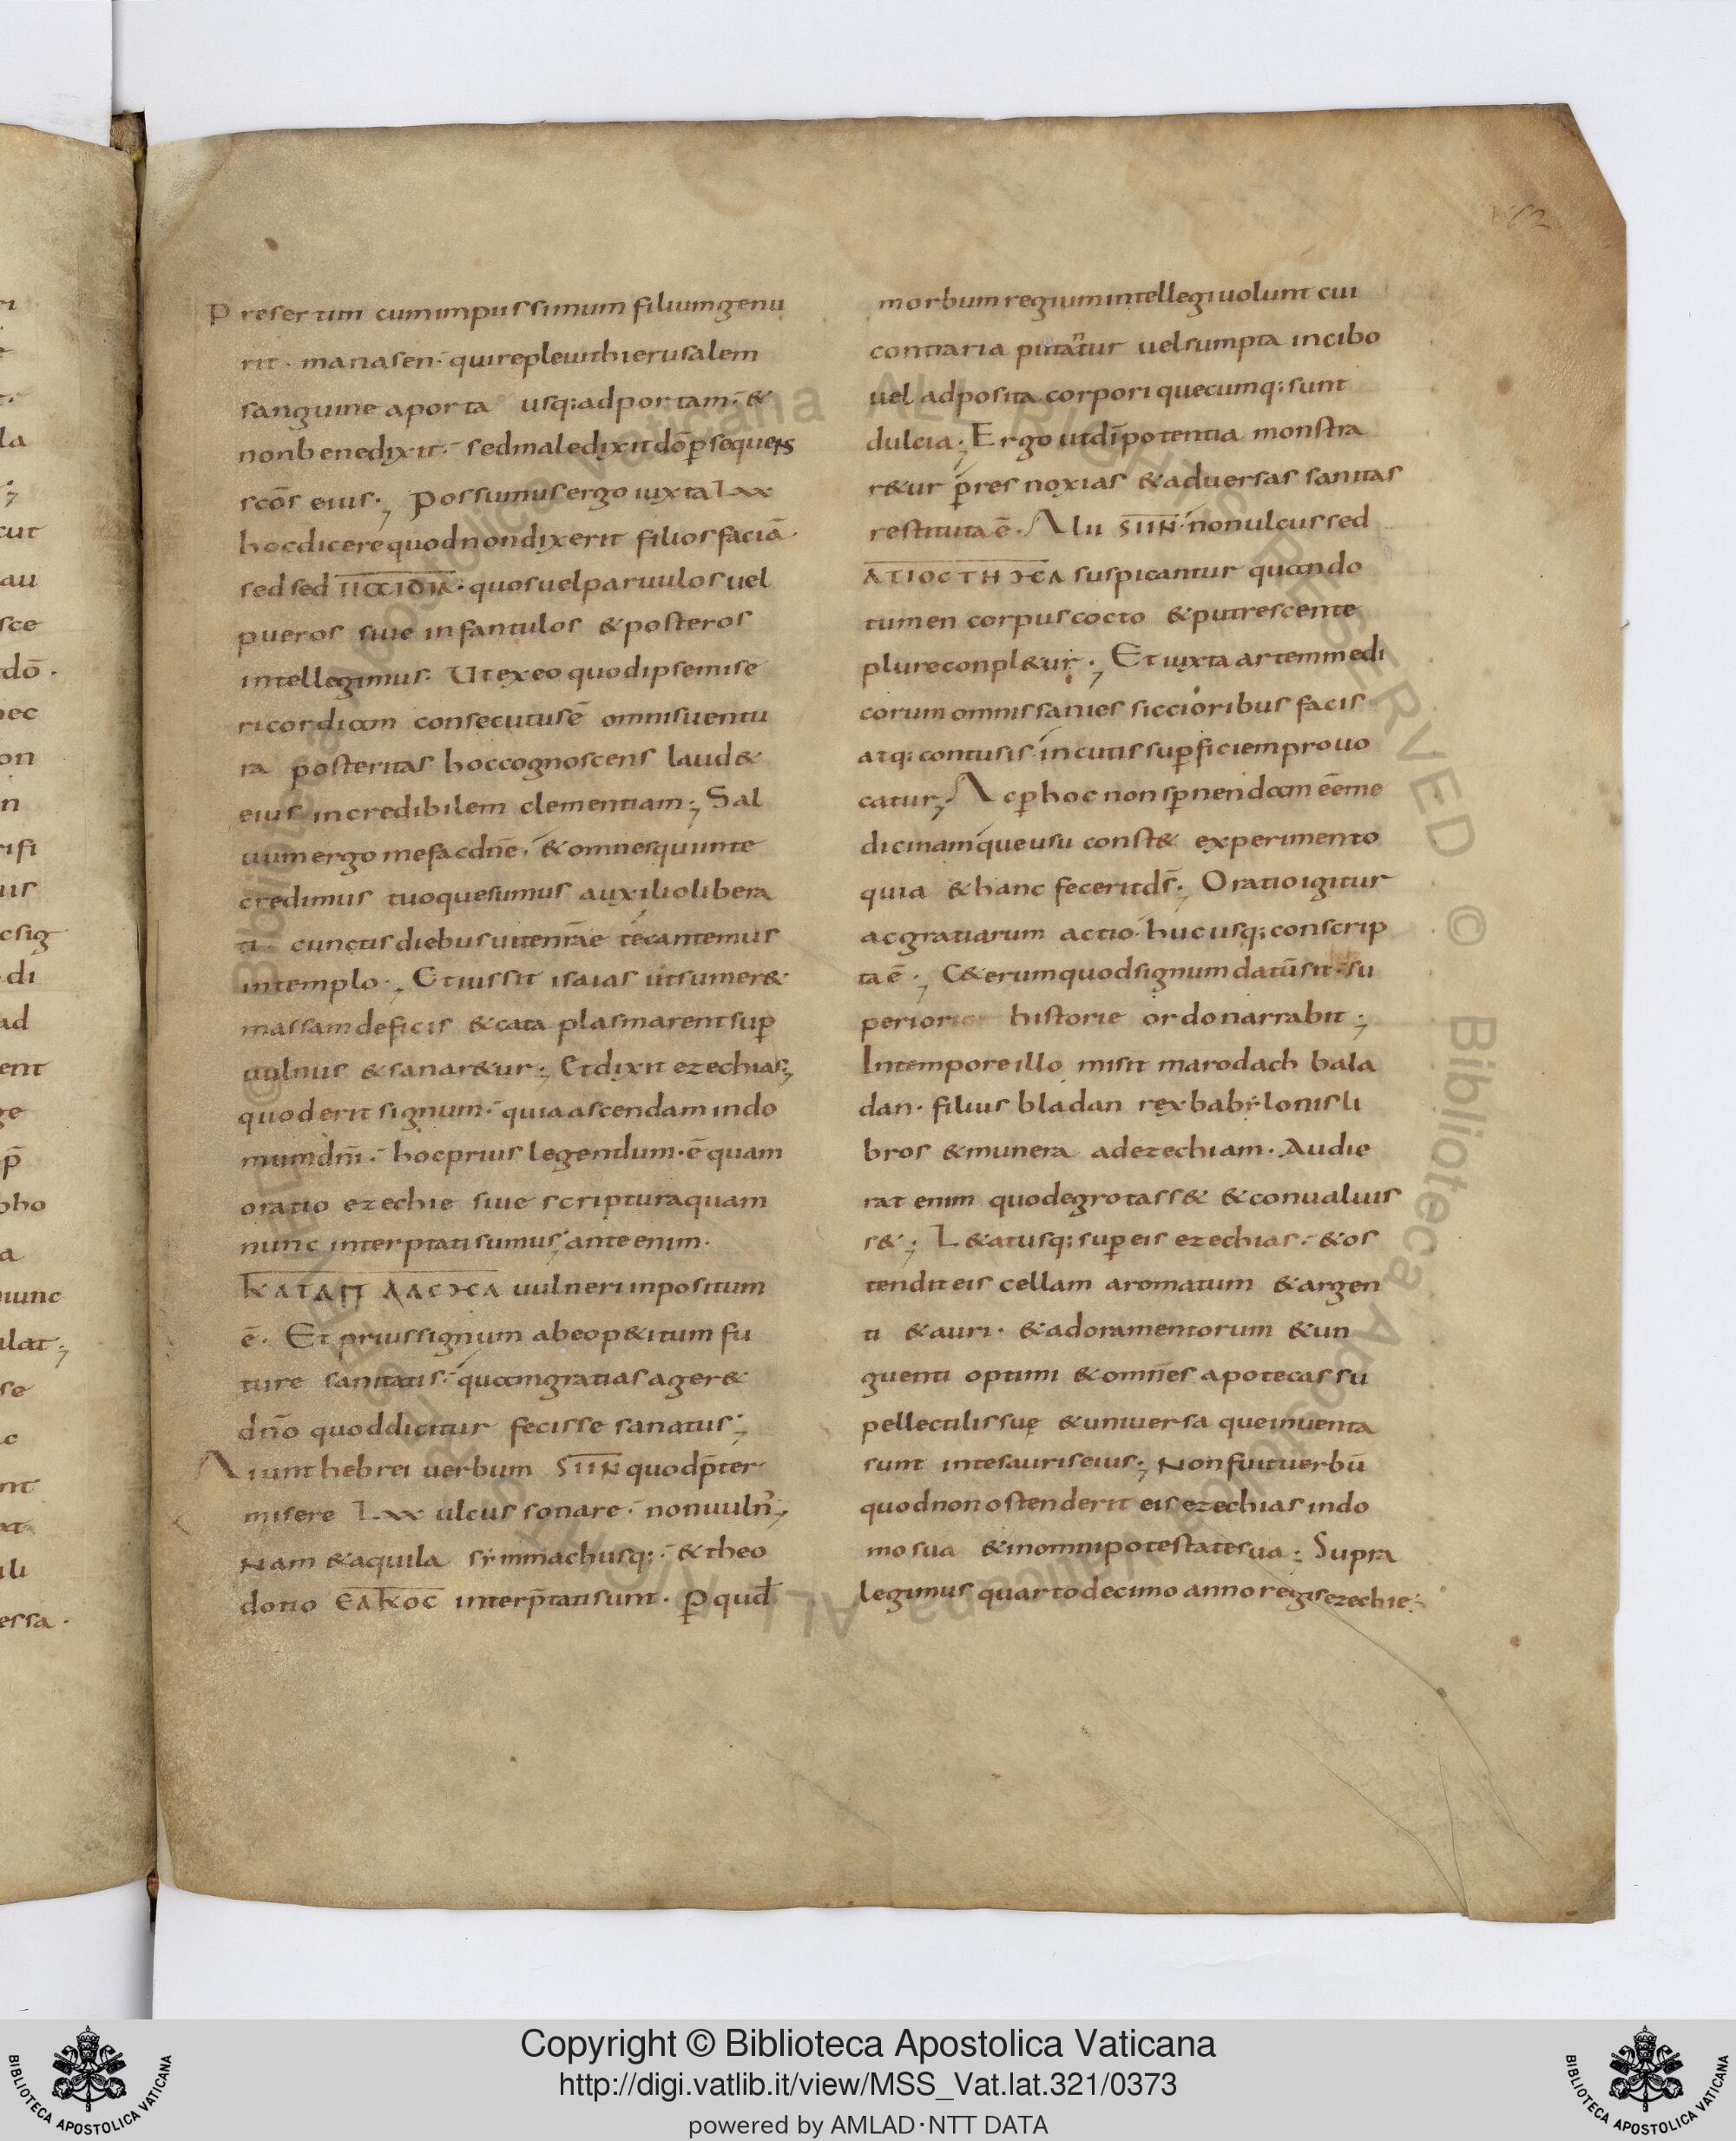 Presertim cum impiissimum filium genu
rit · manasen · qui repleuit hierusalem
sanguine a porta usq; ad portam · &
non benedixit · sed maledixit dō ꝑsequens
scōs eius · possumus ergo iuxta Lxx
hoc dicere quod non dixerit filios faciā
sed sed · quos uel paruulos uel
pueros siue infantulos & posteros
intellegimus · Ut ex eo quod ipse mise
ricordiam consecutus ē omnis uentu
ra posteritas hoc cognoscens laud&
eius incredibilem clementiam ; Sal
uum ergo me fac dn̄e · & omnes qui in te
credimus tuoque sumus auxilio libera
ti · cunctis diebus uite nrāe te cantemus
in templo ; Et iussit isaias ut sumer&
massam de ficis & cataplasmarent suꝑ
uulnus & sanar&ur ; Et dixit ezechias ;
quod erit signum · quia ascendam in do
mum dn̄i · hoc prius legendum · ē quam
oratio ezechie siue scriptura quam
nunc interptati sumus ante enim ·
ΚΑΤΑΠΛΑCΜΑ uulneri inpositum
ē · Et prius signum ab eo p&itum fu
ture sanitatis · quam gratias ager&
dn̄o quod dicitur fecisse sanatus ;
Aiunt hebrei uerbum SIIN quod p̄ter
misere Lxx ulcus sonare · non uuln̄ ;
Nam & aquila symmachusq; · & theo
dotio ΕΛΚΟC interp̄tati sunt · ꝑ qud̄
morbum regium intellegi uolunt cui
contraria putantur uel sumpta in cibo
uel adposita corpori quecumq; sunt
dulcia ; Ergo ut dī potentia monstra
r&ur ꝑ res noxias & aduersas sanitas
restituta ē · Alii SIIN · non ulcus sed
ΑΠΟCΤΗΜΑ suspicantur quando
tumen corpus cocto & putrescente
plure conpl&ur ; Et iuxta artem medi
corum omnis sanies siccioribus facis
atq; contusis in cutis suꝑficiem prouo
catur ; Ac ꝑ hoc non sꝑnendam ēē me
dicinam que usu const& experimento
quia & hanc fecerit ds̄ ; Oratio igitur
ac gratiarum actio · huc usq; conscrip
ta ē ; C&erum quod signum datū sit · su
perior historie ordo narrabit ;
In tempore illo misit marodach bala
dan · filius bladan rex babylonis li
bros & munera ad ezechiam · Audie
rat enim quod egrotass& & conualuis
s& ; L&atusq; suꝑ eis ezechias · & os
tendit eis cellam aromatum & argen
ti & auri · & adoramentorum & un
guenti optimi & omn̄es apotecas su
pellectilis suę & uniuersa que inuenta
sunt in tesauris eius ; Non fuit uerbū
quod non ostenderit eis ezechias in do
mo sua & in omni potestate sua ; Supra
legimus quarto decimo anno regis ezechie ·
Copyright © Biblioteca Apostolica Vaticana
http://digi.vatlib.it/view/MSS_Vat.lat.321/0373
powered by AMLAD·NTT DATA
BIBLIOTECA APOSTOLICA VATICANA
BIBLIOTECA APOSTOLICA VATICANA